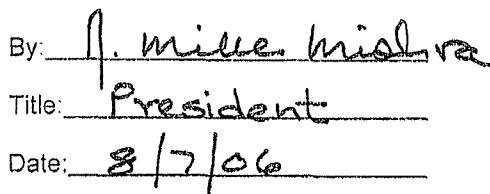 By: A. Mike Mishra
Title: President
Date: 8/7/06